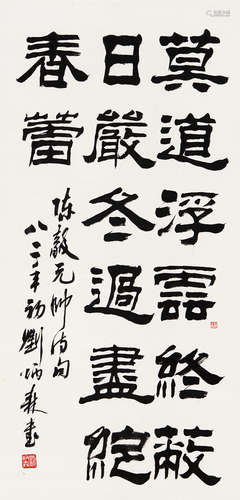 莫道浮雲終蔽
日嚴冬過盡綻
春蕾
陈毅元帅诗句
八二年初劉炳森書